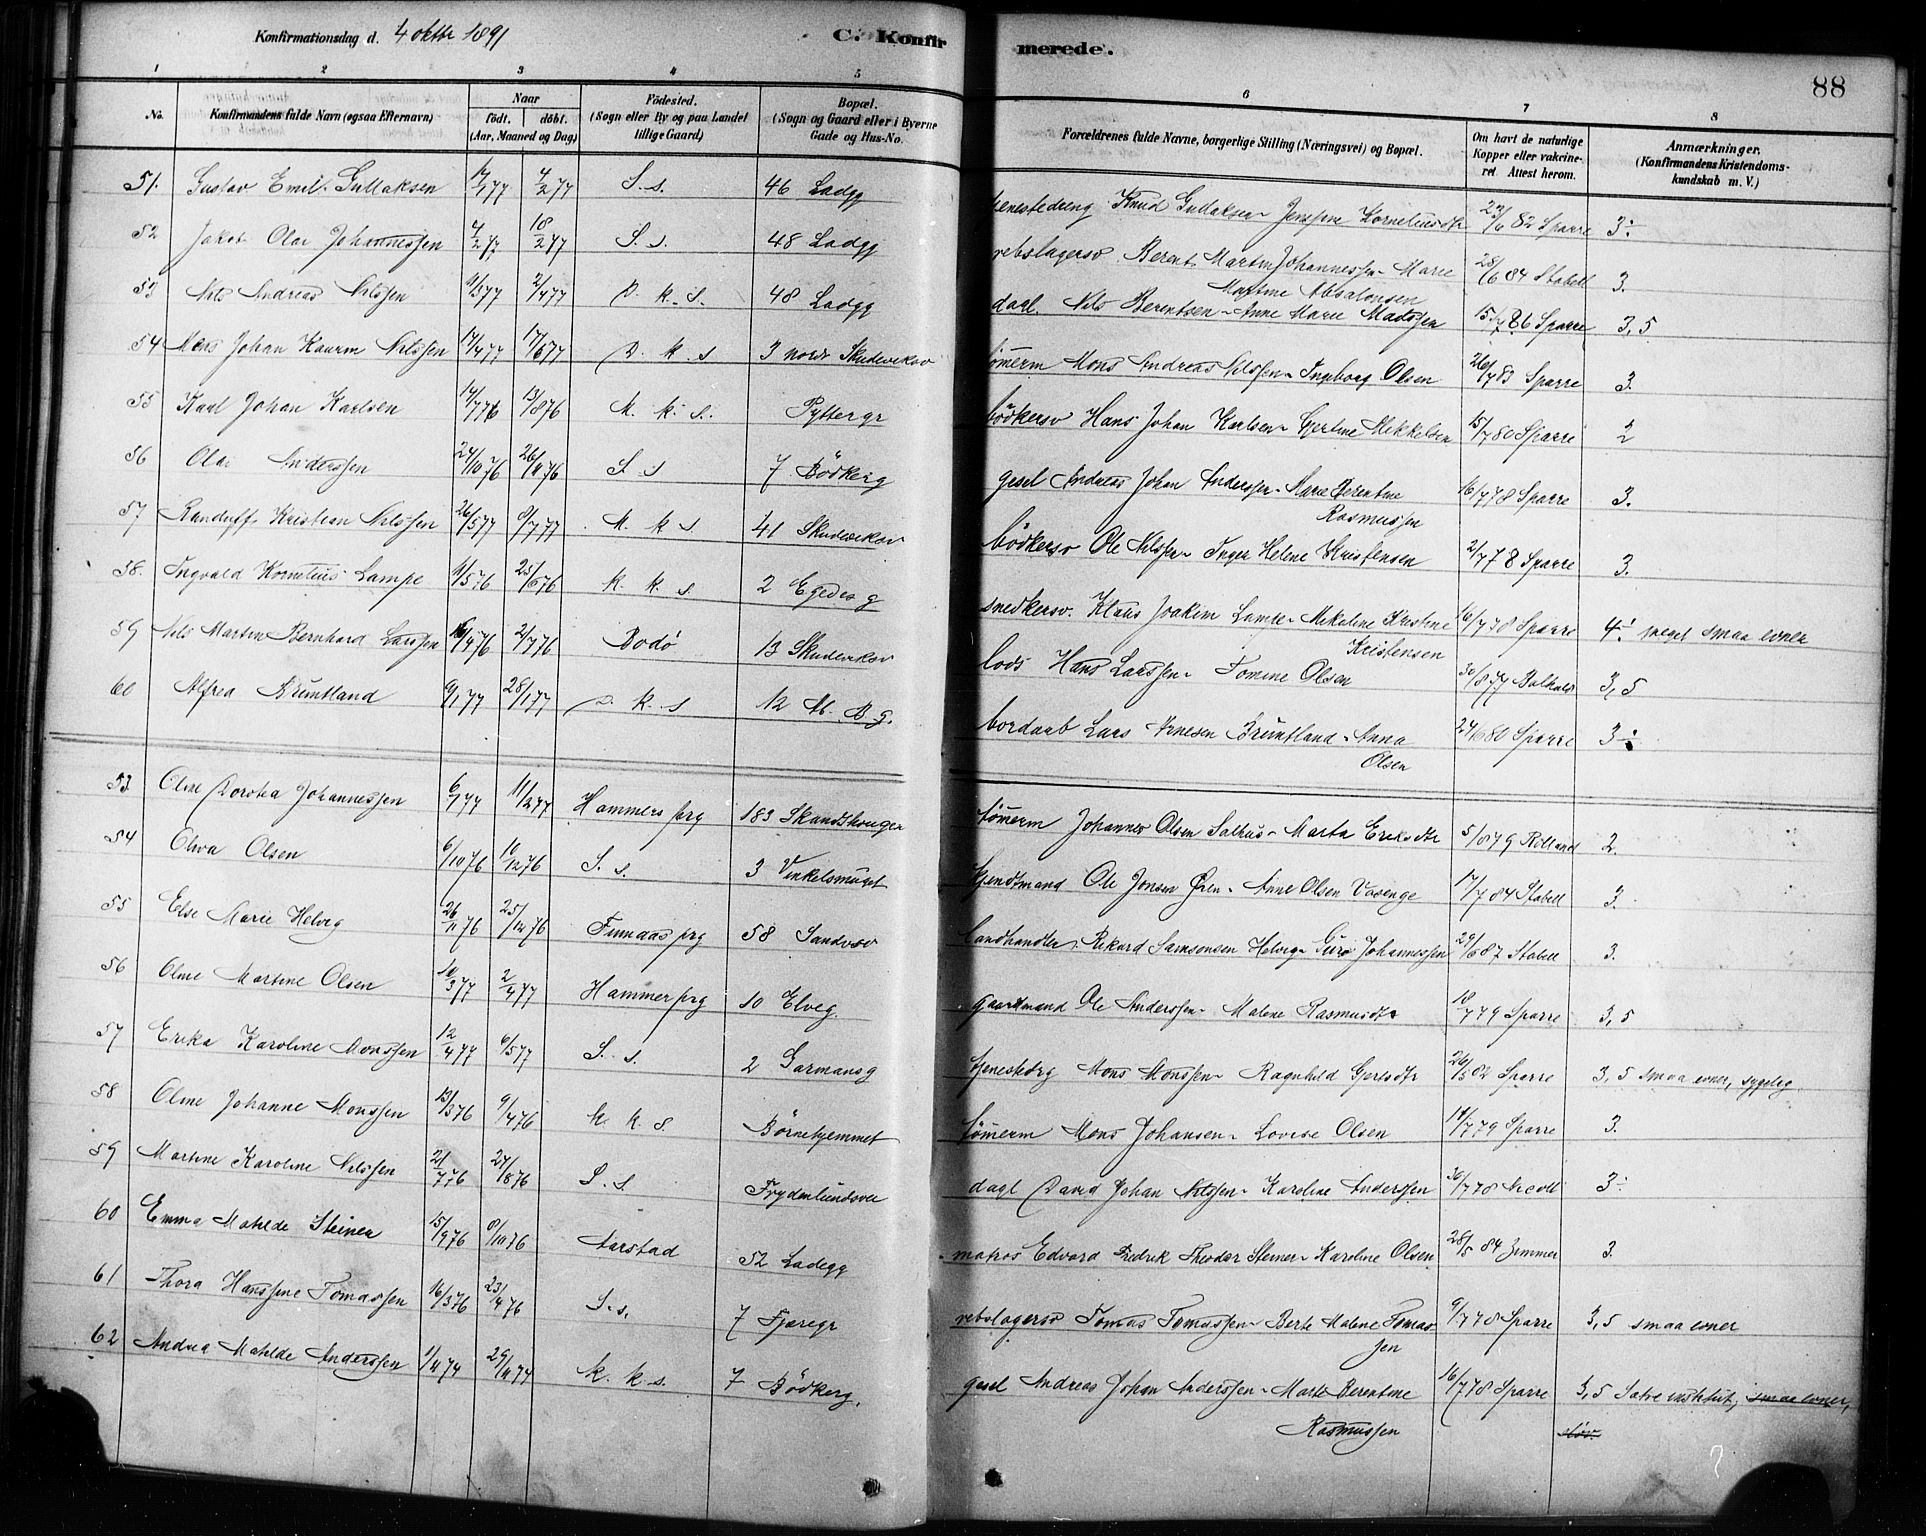 Konfirmationsdag d. 4 oktbr 1891
C. Konfirmerede.
88
1 2 3 4 5 6 7 8
No. Konfirmandens fulde Navn (ogsaa Efternavn) Naar født. døbt. (Aar, Maaned og Dag) Fødested. (Sogn eller By og paa Landet tillige Gaard) Bopæl. (Sogn og Gaard eller i Byerne Gade og Hus-No. Forældrenes fulde Navne, borgerlige Stilling (Næringsvei) og Bopæl. Om havt de naturlige Kopper eller vakcineret. Attest herom. Anmærkninger. (Konfirmandens Kristendomskundskab m. V.)
51. Gustav Emil Gullaksen 4/2 77 S. s. 46 Ladgg tjenestedreng Knud Gullaksen - Jensine Korneliusdtr 23/6 82 Sparre 3÷
52 Jakob Olai Johannessen 4/2 77 18/2 77 S. s. 48 Ladgg rebslagersv Berent Martin Johannessen - Marie Martine Absalonsen 28/6 84 Stabell 3.
53 Nils Andreas Nilssen 9/3 77 2/4 77 D. k. s. 48 Ladgg Nils Berentsen - Anne Marie Madssen 15/7 86 Sparre 3,5
54 Mons Johan Nilssen 17/4 77 17/6 77 D. k. s 3 nordr Skudevikov tömerm Mons Andreas Nilssen - Ingeborg Olsen 26/7 83 Sparre 3.
55 Karl Johan Karlsen 14/7 76 13/8 76 M. k. s. Pyttergr bödkersv Hans Johan Karlsen - Gjertine Mikkelsen 15/7 80 Sparre 2
56 Olai Anderssen 24/10 76 26/11 76 S. s 7 Bödkerg gesel Andreas Johan Anderssen - Marie Berentine Rasmussen 16/7 78 Sparre 3.
57 Randulff Kristian Nilssen 26/5 77 8/7 77 M. k s 41 Skudevikov bödkersv Ole Nilssen - Inger Helene Kristensen 2/7 78 Sparre 3.
58. Ingvald Kornelius Lampe 11/5 76 25/6 76 k. k. s 2 Egedesg snedkersv. Klaus Joakim Lampe - Mikaline Kristine Kristensen 16/7 78 Sparre 4÷ meget smaa evner
59 Nils Martin Bernhard Larssen 2/7 76 Bodø 13 Skudevikov lods Hans Larssen - Tomine Olsen 30/8 77 3,5
60 Alfred Bruntland 9/1 77 28/1 77 D. k. s 12 bordarb Lars Arnesen Bruntland - Anna Olsen 24/6 80 Sparre 3÷
53 Oline Dorotea Johannessen 6/1 77 11/2 77 Hammers prg 183 Skandsehauger tömerm Johannes Olsen Salhus - Marta Eriksdtr 5/8 79 Rolland 2.
54 Oliva Olsen 6/10 76 10/12 76 S. s. 3 Vinkelsmuget Ole Jonsen Øren - Anne Olsen Vasenge 17/7 84 Stabell 3.
55 Else Marie Helvig 26/11 76 25/12 76 Finnaas prg 58 Sandvsv landhandler Rikard Samsonsen Helvig - Guro Johannessen 29/6 87 Stabell 3.
56 Oline Martine Olsen 10/3 77 2/4 77 Hammer prg 10 Elveg. gaardmand Ole Anderssen - Malene Rasmusdtr 18/7 79 Sparre 3,5
57 Erika Karoline Monssen 12/4 77 6/5 77 S. s. 2 Garmansg tjenestedrg Mons Monssen - Ragnhild Gertsdtr 26/5 82 Sparre 3,5 smaa evner, sygelig.
58 Oline Johanne Monssen 13/3 76 9/4 76 k. k. s Börnehjemmet tömerm Mons Johansen - Lovise Olsen 11/7 79 Sparre 3.
59 Martine Karoline Nilssen 2/7 76 27/8 76 S. s Frydenlundsvei dagl David Johan Nilssen - Karoline Anderssen 30/7 78 Nicoll 3÷
60 Emma Matilde Steiner 15/9 76 8/10 76 Aarstad 52 Ladegg matros Edvard Fredrik Theodor Steiner - Karoline Olsen 28/5 84 Zimmer 3.
61 Thora Hanssine Tomassen 16/3 76 23/4 76 S. s. 7 Fjæregr rebslagersv Tomas Tomassen - Berte Malene Tomassen 9/7 78 Sparre 3,5 smaa evner
62 Andrea Matilde Anderssen 1/11 74 29/11 74 k. k. s. 7 Bödkerg. gesel Andreas Johan Anderssen - Marte Berentine Rasmussen 16/7 78 Sparre 3,5 institut, smaa evner, sløv.